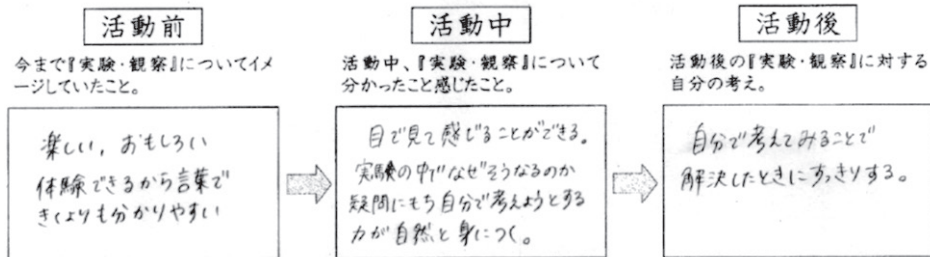 活動前
今まで『実験・観察』についてイメ
ージしていたこと。
楽しい，おもしろい
体験できるから言葉で
きくよりも分かりやすい
活動中
活動中、『実験・観察』について
分かったこと感じたこと。
目で見て感じることができる。
実験の中で"なぜ"そうなるのか
疑問にもち自分で考えようとする
力が自然と身につく。
活動後
活動後の『実験・観察』に対する
自分の考え。
自分で考えてみることで
解決したときにすっきりする。